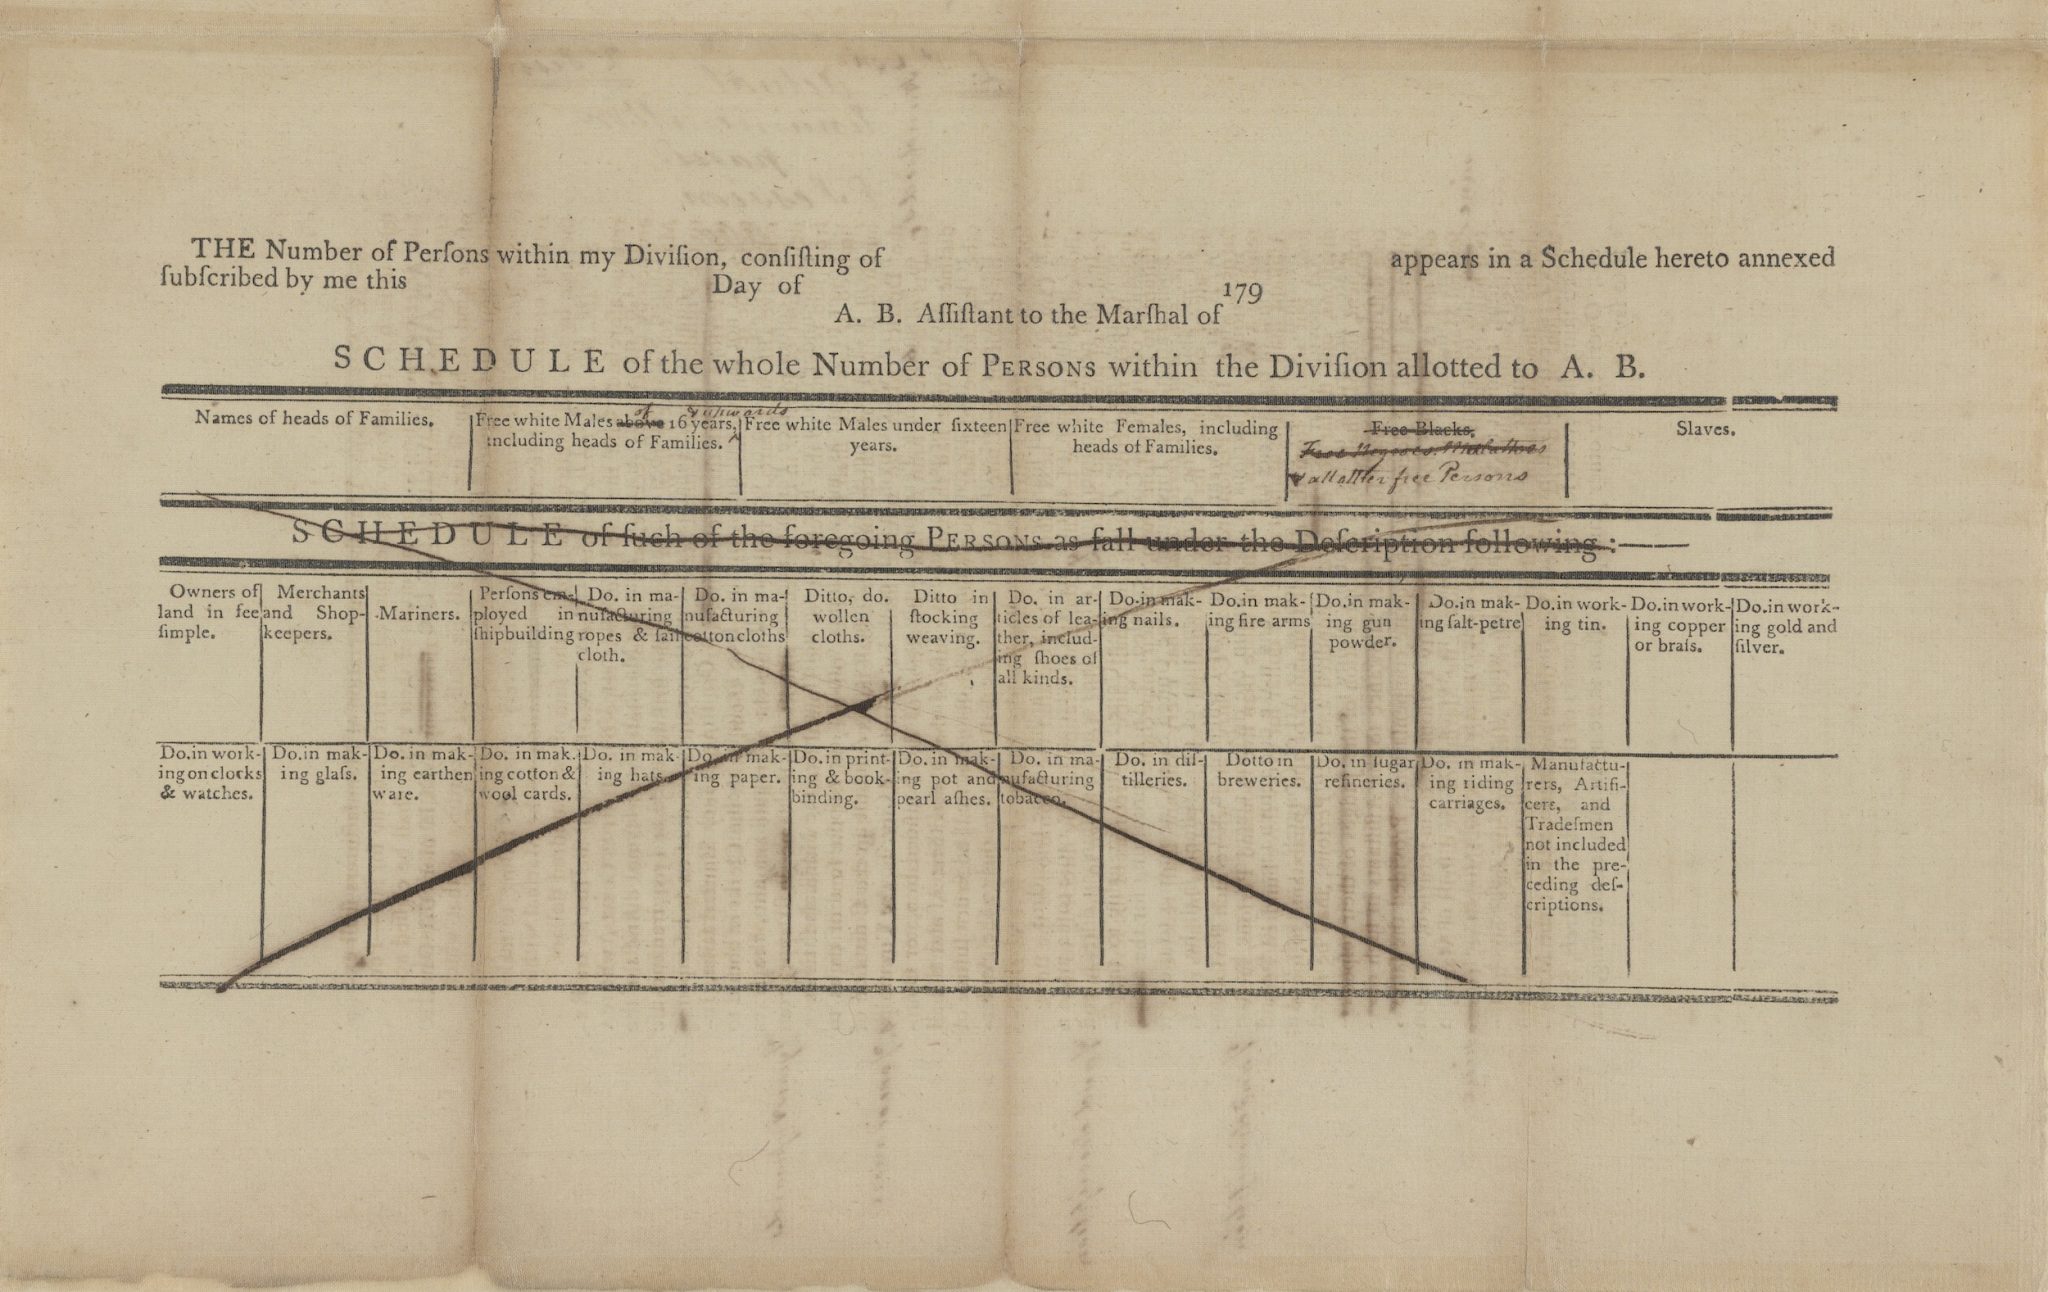 THE Number of Perſons within my Diviſion, conſiſting of appears in a Schedule hereto annexed
ſubſcribed by me this Day of 179
A. B. Aſſiſtant to the Marſhal of
SCHEDULE of the whole Number of PERSONS within the Diviſion allotted to A. B.
Names of heads of Families.
Free white Males above of 16 years, & upwards
including heads of Families.
Free white Males under ſixteen
years.
Free white Females, including
heads of Families.
Free Blacks.
Free Negroes, Mulattoes
& all other free Persons
Slaves.
SCHEDULE of ſuch of the foregoing PERSONS as fall under the Deſcription following :—
Owners of
land in fee
ſimple.
Merchants
and Shop-
keepers.
Mariners.
Perſons em-
ployed in
ſhipbuilding
Do. in ma-
nufacturing
ropes & ſail
cloth.
Do. in ma-
nufacturing
cotton cloths
Ditto, do.
wollen
cloths.
Ditto in
ſtocking
weaving.
Do. in ar-
ticles of lea-
ther, includ-
ing ſhoes of
all kinds.
Do. in mak-
ing nails.
Do. in mak-
ing fire arms
Do. in mak-
ing gun
powder.
Do. in mak-
ing ſalt-petre
Do. in work-
ing tin.
Do. in work-
ing copper
or braſs.
Do. in work-
ing gold and
ſilver.
Do. in work-
ing on clocks
& watches.
Do. in mak-
ing glaſs.
Do. in mak-
ing earthen
ware.
Do. in mak-
ing cotton &
wool cards.
Do. in mak-
ing hats.
Do. in mak-
ing paper.
Do. in print-
ing & book-
binding.
Do. in mak-
ing pot and
pearl aſhes.
Do. in ma-
nufacturing
tobacco.
Do. in diſ-
tilleries.
Dotto in
breweries.
Do. in ſugar
refineries.
Do. in mak-
ing riding
carriages.
Manufactu-
rers, Artifi-
cers, and
Tradeſmen
not included
in the pre-
ceding deſ-
criptions.